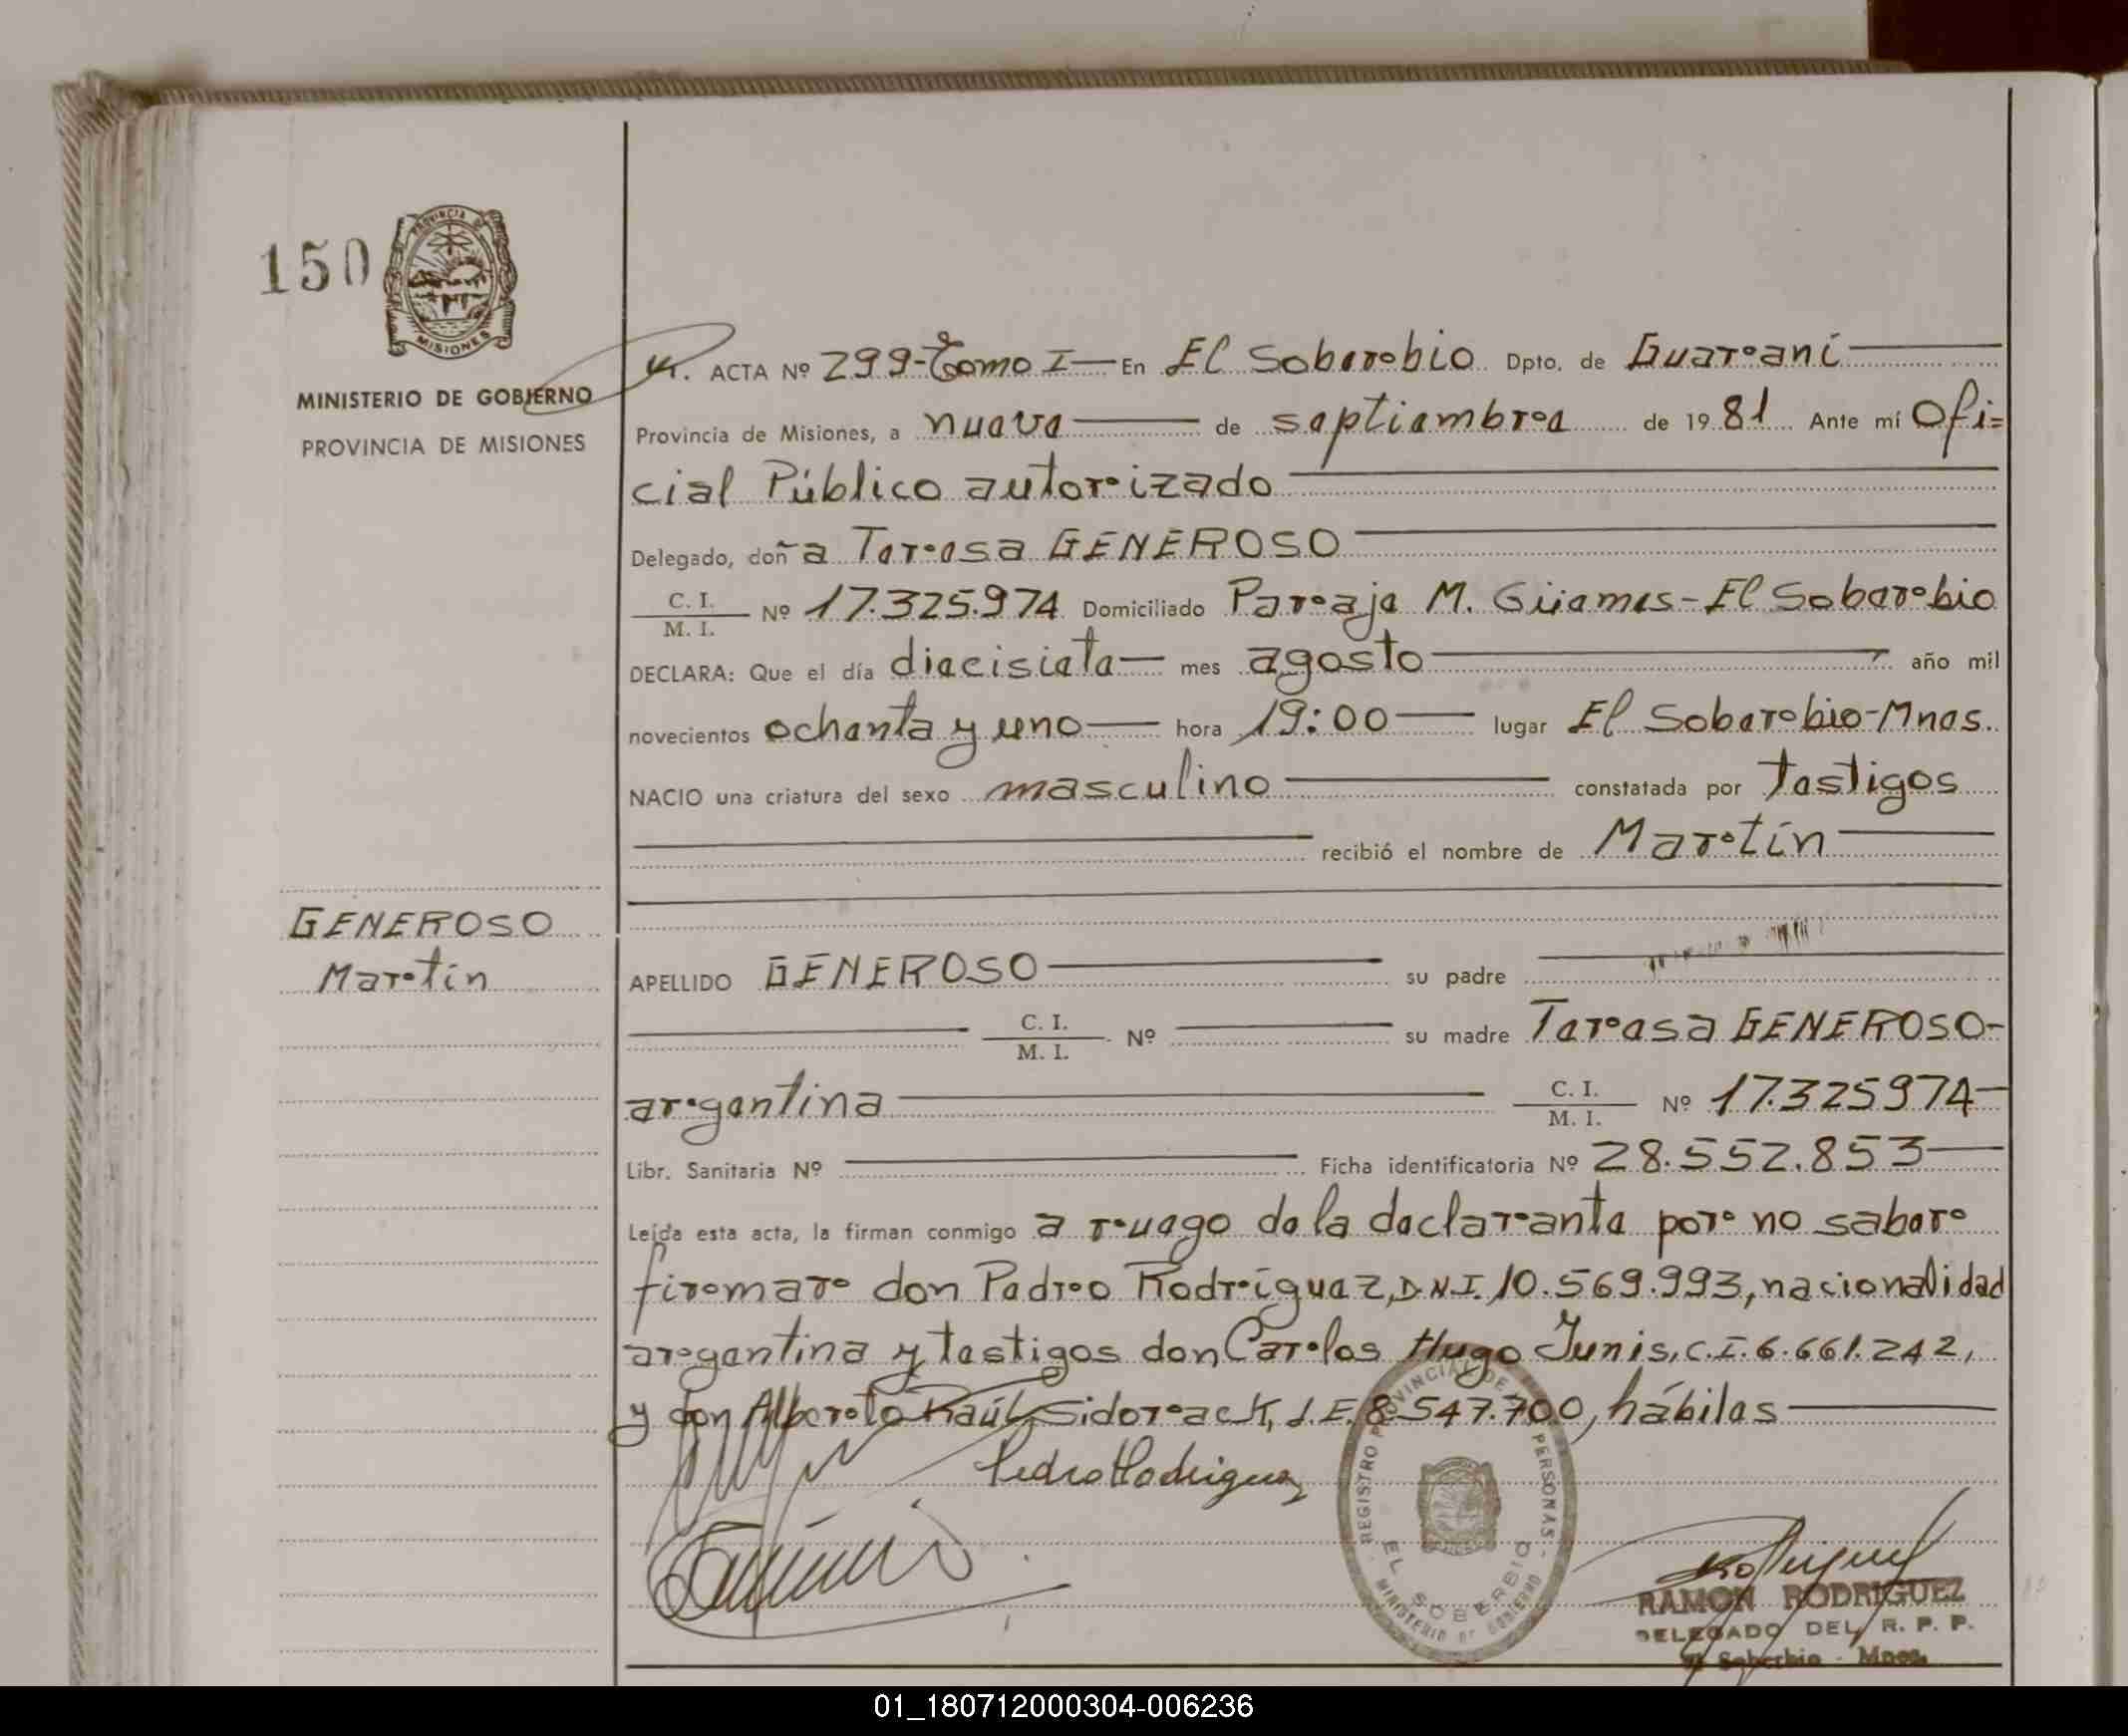 150
PROVINCIA DE
MISIONES
MINISTERIO DE GOBIERNO
PROVINCIA DE MISIONES
ACTA Nº 299-Tomo I — En El Soberbio Dpto. de Guaraní
Provincia de Misiones, a nueve de septiembre de 19 81 Ante mí Ofi=
cial Público autorizado
Delegado, doña Teresa GENEROSO
C. I.
M. I. Nº 17.325.974 Domiciliado Paraje M. Güemes - El Soberbio
DECLARA: Que el día diecisiete mes agosto año mil
novecientos ochenta y uno hora 19:00 lugar El Soberbio-Mnes.
NACIO una criatura del sexo masculino constatada por testigos
recibió el nombre de Martín
GENEROSO
Martín
APELLIDO GENEROSO su padre
C. I.
M. I. Nº su madre Teresa GENEROSO-
argentina C. I.
M. I. Nº 17.325974-
Libr. Sanitaria Nº Ficha identificatoria Nº 28.552.853
Leída esta acta, la firman conmigo a ruego de la declarante por no saber
firmar don Pedro Rodríguez, D.N.I. 10.569.993, nacionalidad
argentina y testigos don Carlos Hugo Junis, C.I. 6.661.242,
y don Alberto Raúl Sidoreack, L.E. 8.547.700, hábiles
Pedro Rodriguez
REGISTRO PROVINCIAL DE PERSONAS
EL SOBERBIO
MINISTERIO DE GOBIERNO
RAMON RODRIGUEZ
DELEGADO DEL R. P. P.
El Soberbio - Mnes.
01_180712000304-006236